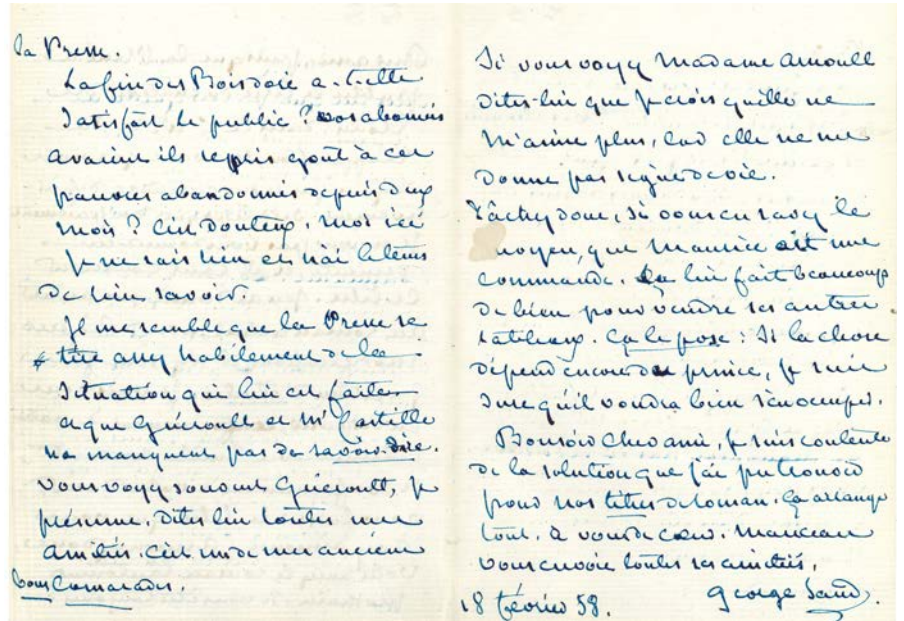 la Presse.
La fin des Bois doré a-t-elle
Satisfait le public ? vos abonnés
avaient ils repris goût à ces
pauvres abandonnés depuis deux
mois ? C'est douteux. Moi ici
je ne sais rien et n'ai le tems
de rien savoir.
Il me semble que la Presse se
tire assez habilement de la
Situation qui lui est faite
et que Guéroult et Mr Castille
ne manquent pas de savoir dire.
vous voyez souvent Guéroult, je
présume, dites lui toutes mes
amitiés. C'est un de mes anciens
bons camarades.
Si vous voyez Madame Arnoult
dites-lui que je crois qu'elle ne
m'aime plus, car elle ne me
donne pas signe de vie.
Tâchez donc, si vous en savez le
moyen, que Maurice ait une
commande. Ça lui fait beaucoup
de bien pour vendre ses autres
tableaux. Ça le pose : Si la chose
dépend encore du prince, je suis
sure qu'il voudra bien s'en occuper.
Bonsoir cher ami, je suis contente
de la solution que j'ai pu trouver
pour nos titres de roman. Ça arrange
tout. à vous de cœur. Manceau
vous envoie toutes ses amitiés.
George Sand
18 février 58.